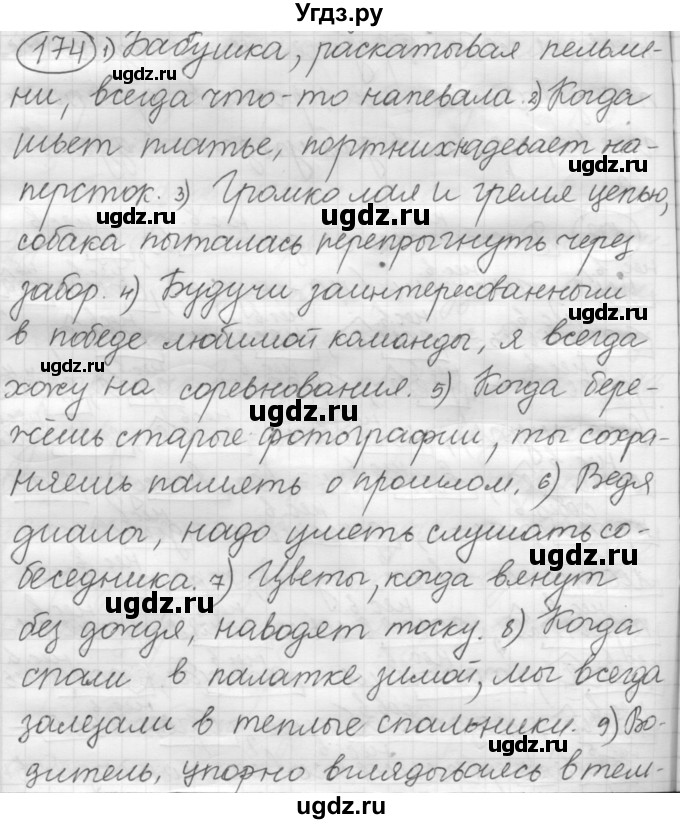 Угдз.ру
174 1) Бабушка, раскатывая пельме-
ни, всегда что-то напевала. 2) Когда
шьет платье, портниха надевает на-
персток. 3) Громко лая и гремя цепью,
собака пыталась перепрыгнуть через
забор. 4) Будучи заинтересованный
в победе любимой команды, я всегда
хожу на соревнования. 5) Когда бере-
жёшь старые фотографии, ты сохра-
няешь память о прошлом. 6) Ведя
диалог, надо уметь слушать со-
беседника. 7) Цветы, когда вянут
без дождя, наводят тоску. 8) Когда
спали в палатке зимой, мы всегда
залезали в теплые спальники. 9) Во-
дитель, упорно вглядываясь в тем-
ugdz.ru
ugdz.ru
ugdz.ru
ugdz.ru
ugdz.ru
ugdz.ru
ugdz.ru
ugdz.ru
ugdz.ru
ugdz.ru
ugdz.ru
ugdz.ru